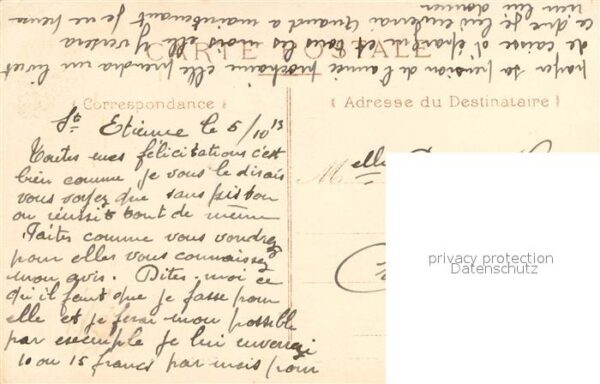 CARTE POSTALE
Correspondance
Adresse du Destinataire
St Etienne le 5/10 13
Toutes mes félicitations c'est
bien comme je vous le disais
vous voyez que sans piston
on réussit tout de même
Faites comme vous voudrez
pour elles vous connaissez
mon avis. Dites-moi ce
qu'il faut que je fasse pour
elle et je ferai mon possible
par exemple je lui enverrai
10 ou 15 francs par mois pour
payer sa pension de l'année prochaine elle prendra un livret
de caisse d'épargne et tous les mois elle y versera
ce que je lui enverrai Quand a maintenant je ne peux
rien lui donner
Melle
privacy protection
Datenschutz